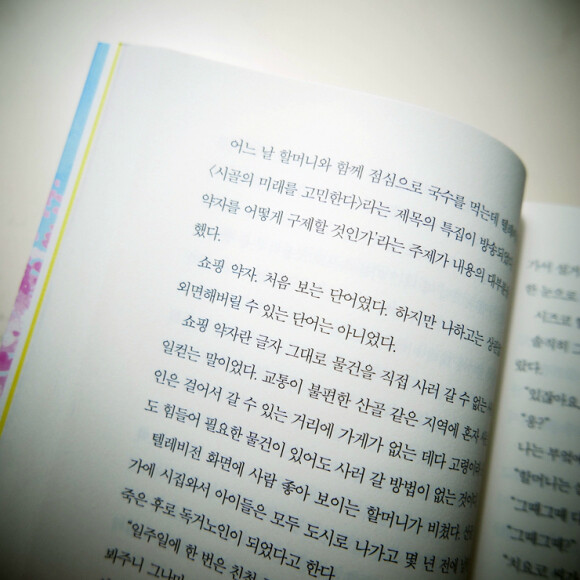 어느 날 할머니와 함께 점심으로 국수를 먹는데
〈시골의 미래를 고민한다〉라는 제목의 특집이 방송되었
약자를 어떻게 구제할 것인가'라는 주제가 내용의 대부분
했다.
쇼핑 약자. 처음 보는 단어였다. 하지만 나하고는
외면해버릴 수 있는 단어는 아니었다.
쇼핑 약자란 글자 그대로 물건을 직접 사러 갈 수 없는
일컫는 말이었다. 교통이 불편한 산골 같은 지역에 혼자
인은 걸어서 갈 수 있는 거리에 가게가 없는 데다 고령이라
도 힘들어 필요한 물건이 있어도 사러 갈 방법이 없는 것이다.
텔레비전 화면에 사람 좋아 보이는 할머니가 비쳤다.
가에 시집와서 아이들은 모두 도시로 나가고 몇 년 전에
죽은 후로 독거노인이 되었다고 한다.
"일주일에 한 번은 친척
봐주니 그나마
가서
한 눈으로
시즈로
솔직히
았다.
"있잖아요
"응?"
나는 부엌에
"할머니는
"그때그때
"그때그때?"